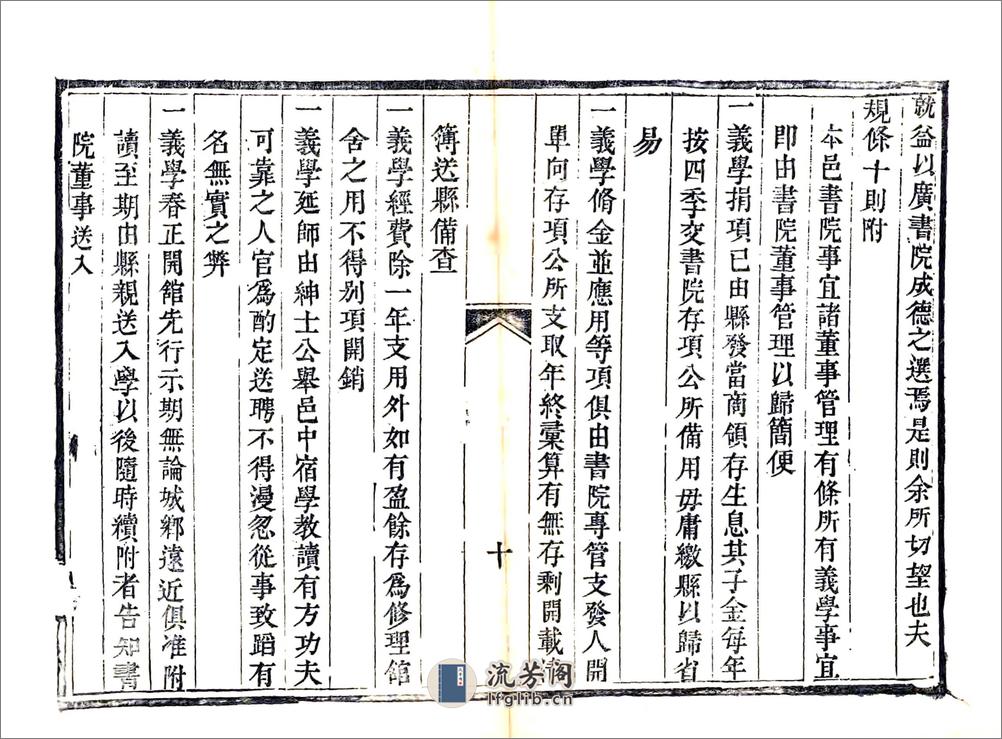 就益以廣書院成德之選焉是則余所切望也夫
規條十則附
本邑書院事宜諸董事管理有條所有義學事宜
即由書院董事管理以歸簡便
一義學捐項已由縣發當商領存生息其子金每年
按四季交書院存項公所備用毋庸繳縣以歸省
易
一義學脩金並應用等項俱由書院專管支發人開
單向存項公所支取年終彙算有無存剩開載
簿送縣備查
一義學經費除一年支用外如有盈餘存爲修理館
舍之用不得别項開銷
一義學延師由紳士公舉邑中宿學教讀有方功夫
可靠之人官爲酌定送聘不得漫忽從事致蹈有
名無實之弊
一義學春正開館先行示期無論城鄉遠近俱准附
讀至期由縣親送入學以後隨時續附者告知書
院董事送入
十
流芳阁
lfglib.cn